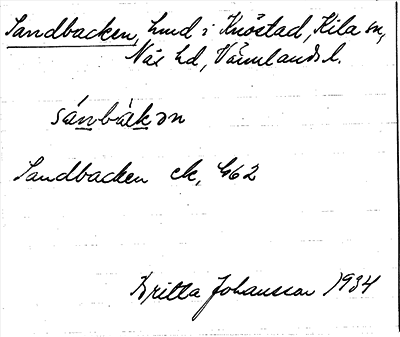 Sandbacken, hmd i Knöstad, Kila sn,
Näs hd, Värmlands l.
sánbàkən
Sandbacken ek, 462
Britta Johansson 1934